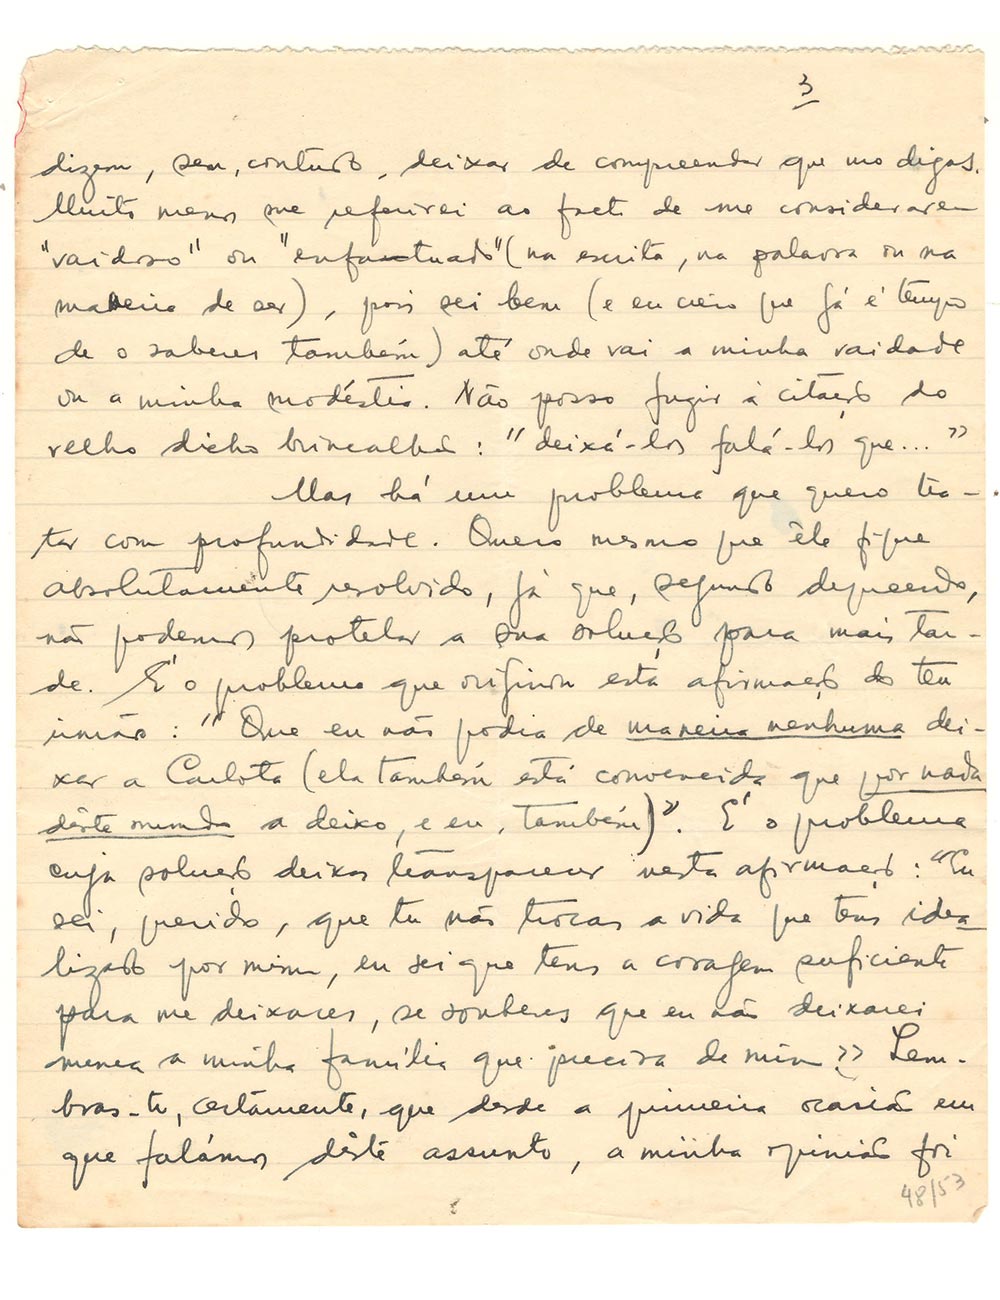 3
dizem, sem, contudo, deixar de compreender que mo digas.
Muito menos me referirei ao facto de me considerarem
"vaidoso" ou "enfatuado" (na escrita, na palavra ou na
maneira de ser), pois sei bem (e eu creio que já é tempo
de o saberes também) até onde vai a minha vaidade
ou a minha modéstia. Não posso fugir à citação do
velho dicho brincalhão: "deixá-los falá-los que..."
Mas há um problema que quero tra-
tar com profundidade. Quero mesmo que êle fique
absolutamente resolvido, já que, segundo depreendo,
não podemos protelar a sua solução para mais tar-
de. É o problema que originou esta afirmação do teu
irmão: "Que eu não podia de maneira nenhuma dei-
xar a Carlota (ela também está convencida que por nada
dêste mundo a deixo, e eu, também)". É o problema
cuja solução deixas transparecer nesta afirmação: "Eu
sei, querido, que tu não trocas a vida que tens idea
lizado por mim, eu sei que tens a coragem suficiente
para me deixares, se souberes que eu não deixarei
nunca a minha família que precisa de mim." Lem-
bras-te, certamente, que desde a primeira ocasião em
que falámos dêste assunto, a minha opinião foi
48/53